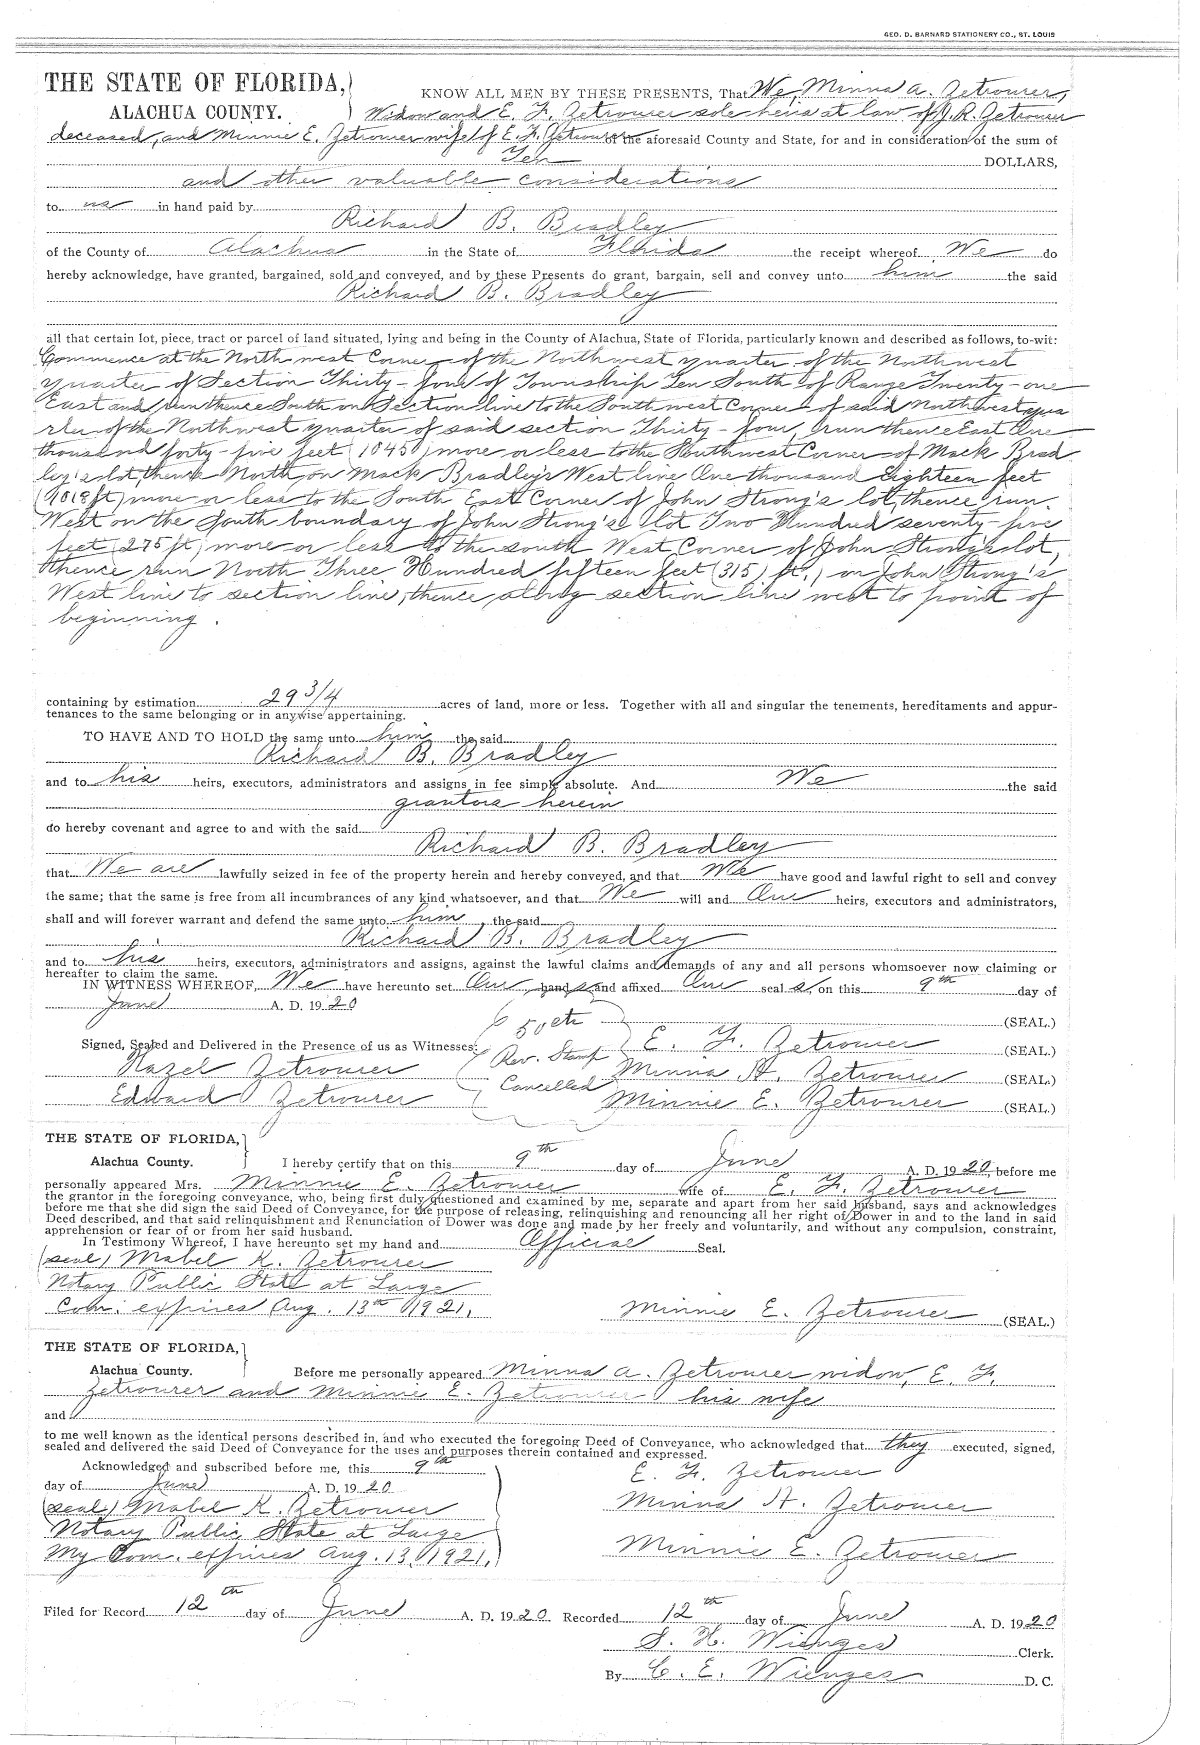 GEO. D. BARNARD STATIONERY CO., ST. LOUIS
THE STATE OF FLORIDA,
ALACHUA COUNTY.
KNOW ALL MEN BY THESE PRESENTS, That We, Minna A. Zetrouer,
Widow and E. F. Zetrouer sole heirs at law of J. R. Zetrouer
deceased, and Minnie E. Zetrouer wife of E. F. Zetrouer of the aforesaid County and State, for and in consideration of the sum of
Ten DOLLARS,
and other valuable considerations
to us in hand paid by
Richard B. Bradley
of the County of Alachua in the State of Florida the receipt whereof We do
hereby acknowledge, have granted, bargained, sold and conveyed, and by these Presents do grant, bargain, sell and convey unto him the said
Richard B. Bradley
all that certain lot, piece, tract or parcel of land situated, lying and being in the County of Alachua, State of Florida, particularly known and described as follows, to-wit:
Commence at the North west Corner of the Northwest quarter of the Northwest
quarter of Section Thirty-four of Township Ten South of Range Twenty-one
East and run thence South on Section line to the Southwest Corner of said Northwest qua
rter of the Northwest quarter of said section Thirty-four, run thence East One
thousand forty-five feet (1045) more or less to the Southwest Corner of Mack Brad
ley's lot, thence North on Mack Bradley's West line One thousand Eighteen feet
(1018 ft) more or less to the South East Corner of John Strong's lot, thence run
West on the South boundary of John Strong's lot Two Hundred seventy-five
feet (275 ft) more or less to the south West Corner of John Strong's lot,
thence run North Three Hundred fifteen feet (315) ft.) on John Strong's
West line to section line, thence along section line west to point of
beginning.
containing by estimation 29 3/4 acres of land, more or less. Together with all and singular the tenements, hereditaments and appur-
tenances to the same belonging or in anywise appertaining.
TO HAVE AND TO HOLD the same unto him the said
Richard B. Bradley
and to his heirs, executors, administrators and assigns in fee simple absolute. And We the said
grantors herein
do hereby covenant and agree to and with the said
Richard B. Bradley
that We are lawfully seized in fee of the property herein and hereby conveyed, and that We have good and lawful right to sell and convey
the same; that the same is free from all incumbrances of any kind whatsoever, and that We will and Our heirs, executors and administrators,
shall and will forever warrant and defend the same unto him, the said
Richard B. Bradley
and to his heirs, executors, administrators and assigns, against the lawful claims and demands of any and all persons whomsoever now claiming or
hereafter to claim the same.
IN WITNESS WHEREOF, We have hereunto set Our hand s and affixed Our seal s, on this 9th day of
June A. D. 1920
50 cts (SEAL.)
Signed, Sealed and Delivered in the Presence of us as Witnesses: E. F. Zetrouer (SEAL.)
Hazel Zetrouer Rev. Stamp Minna A. Zetrouer (SEAL.)
Edward Zetrouer Cancelled Minnie E. Zetrouer (SEAL.)
THE STATE OF FLORIDA,
Alachua County. I hereby certify that on this 9th day of June A. D. 1920, before me
personally appeared Mrs. Minnie E. Zetrouer wife of E. F. Zetrouer
the grantor in the foregoing conveyance, who, being first duly questioned and examined by me, separate and apart from her said husband, says and acknowledges
before me that she did sign the said Deed of Conveyance, for the purpose of releasing, relinquishing and renouncing all her right of Dower in and to the land in said
Deed described, and that said relinquishment and Renunciation of Dower was done and made by her freely and voluntarily, and without any compulsion, constraint,
apprehension or fear of or from her said husband.
In Testimony Whereof, I have hereunto set my hand and Official Seal.
(seal) Mabel K. Zetrouer
Notary Public State at Large
Com. expires Aug. 13th 1921. Minnie E. Zetrouer (SEAL.)
THE STATE OF FLORIDA,
Alachua County. Before me personally appeared Minna A. Zetrouer widow, E. F.
Zetrouer and Minnie E. Zetrouer his wife
and
to me well known as the identical persons described in, and who executed the foregoing Deed of Conveyance, who acknowledged that they executed, signed,
sealed and delivered the said Deed of Conveyance for the uses and purposes therein contained and expressed.
Acknowledged and subscribed before me, this 9th E. F. Zetrouer
day of June A. D. 1920
(seal) Mabel K. Zetrouer Minna A. Zetrouer
Notary Public State at Large
My Com. expires Aug. 13, 1921. Minnie E. Zetrouer
Filed for Record 12th day of June A. D. 1920 Recorded 12th day of June A. D. 1920
S. H. Wienges Clerk.
By C. E. Wienges D. C.